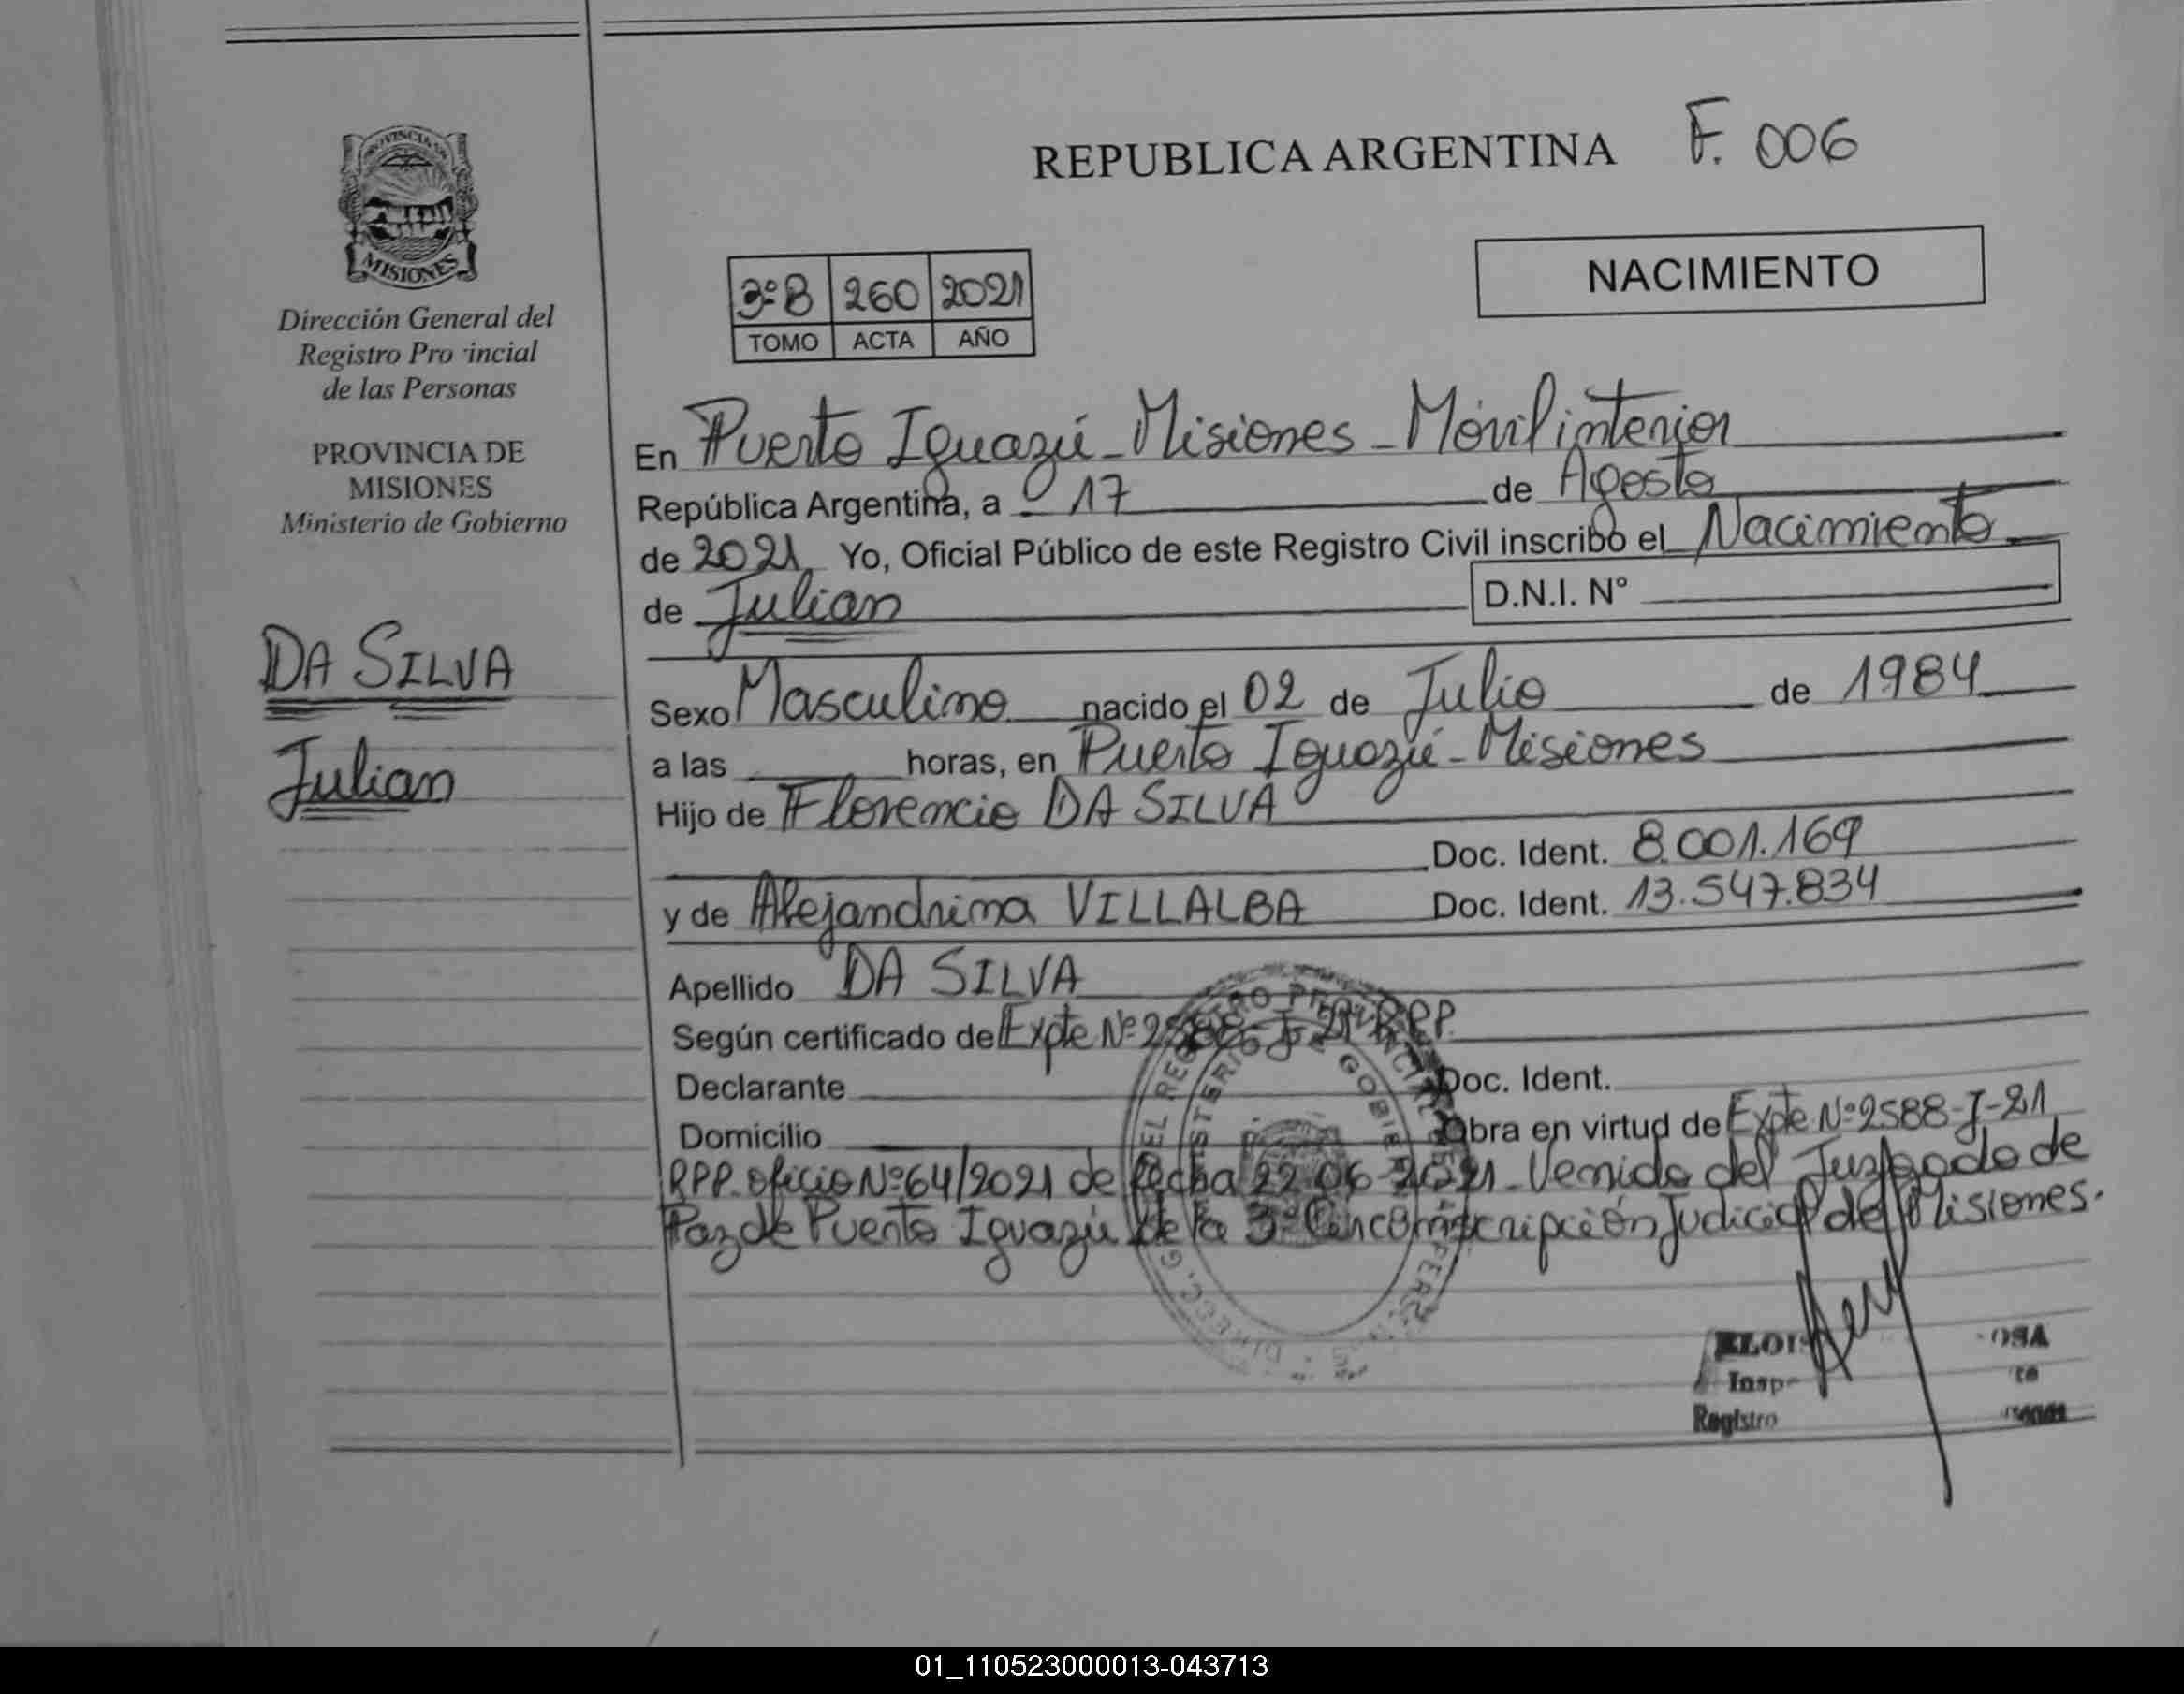 REPUBLICA ARGENTINA F. 006
PROVINCIA DE
MISIONES
Dirección General del
Registro Pro incial
de las Personas
PROVINCIA DE
MISIONES
Ministerio de Gobierno
DA SILVA
Julian
3º B 260 2021
TOMO ACTA AÑO
NACIMIENTO
En Puerto Iguazú - Misiones - Móvil interior
República Argentina, a 17 de Agosto
de 2021 Yo, Oficial Público de este Registro Civil inscribo el Nacimiento
de Julian D.N.I. Nº
Sexo Masculino nacido el 02 de Julio de 1984
a las horas, en Puerto Iguazú - Misiones
Hijo de Florencio DA SILVA
Doc. Ident. 8.001.169
y de Alejandrina VILLALBA Doc. Ident. 13.547.834
Apellido DA SILVA
Según certificado de Expte Nº 2588-J-21 RPP
Declarante Doc. Ident.
Domicilio Obra en virtud de Expte Nº 2588-J-21
RPP. oficio Nº 64/2021 de fecha 22-06-2021 - Venido del Juzgado de
Paz de Puerto Iguazú de la 3º Circonscripción Judicial de Misiones.
Registro
01_110523000013-043713